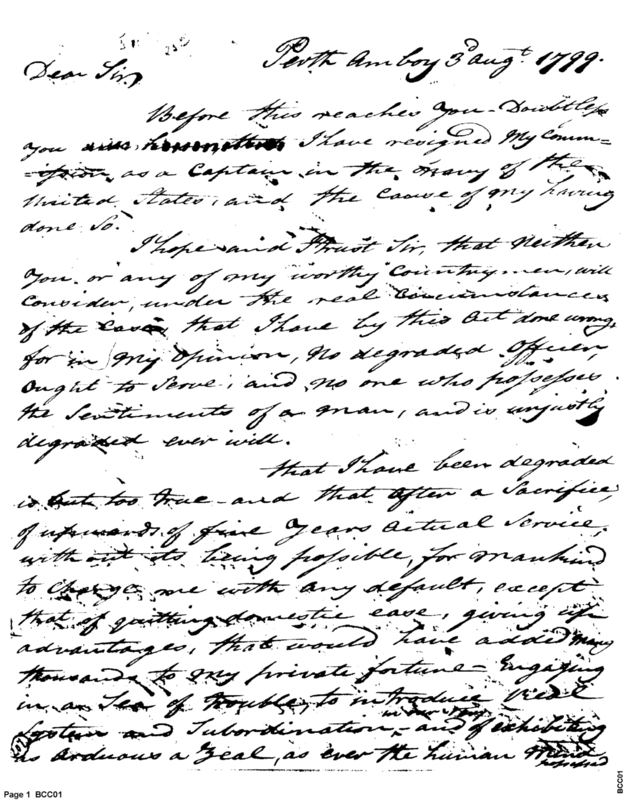 Perth Amboy 3d augt. 1799.
Dear Sir,
Before this reaches You - Doubtless
You I have resigned My Comm=
=ission, as a Captain in the navy of the
United States; and the Cause of my having
done So.
I hope and I trust Sir, that Neither
You, or any of my worthy Countrymen, will
Consider, under the real Circumstances
of the Case, that I have by this Act done wrong,
for in My Opinion, No degraded Officer,
Ought to Serve; and no one who possesses
the Sentiments of a man, and is unjustly
degraded ever will.
that I have been degraded
is but too True - and that After a Sacrifice,
of upwards of five Years Actual Service,
without its being possible, for mankind
to Charge me with any default, except
that of quitting domestic ease, giving up
advantages, that would have added Many
thousands to My private fortune - Engaging
in a Sea of trouble, to introduce real
System and Subordination, in our Navy and of exhibiting
as Arduous a Zeal, as ever the human Mind
possessed
Page 1 BCC01
BCC01